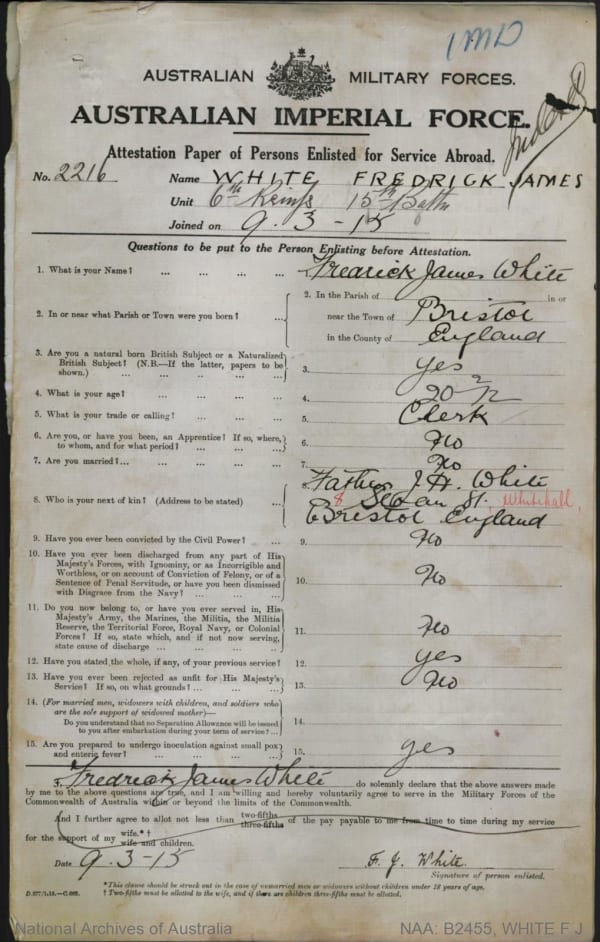 1MD
AUSTRALIAN MILITARY FORCES.
AUSTRALIAN IMPERIAL FORCE.
Indexed
Attestation Paper of Persons Enlisted for Service Abroad.
No. 2216 Name WHITE FREDRICK JAMES
Unit 6th Reinfs 15th Battn
Joined on 9.3-15
Questions to be put to the Person Enlisting before Attestation.
1. What is your Name? ... ... ... ... Fredrick James White
2. In or near what Parish or Town were you born? ... 2. In the Parish of in or
near the Town of Bristol
in the County of England
3. Are you a natural born British Subject or a Naturalized
British Subject? (N.B.—If the latter, papers to be
shown.) ... ... ... ... ... 3. yes
4. What is your age? ... ... ... ... 4. 20 2/12
5. What is your trade or calling? ... ... ... 5. Clerk
6. Are you, or have you been, an Apprentice? If so, where,
to whom, and for what period? ... ... ... 6. No
7. Are you married?... ... ... ... ... 7. No
8. Who is your next of kin? (Address to be stated) ... 8. Father J. H. White
8 Sloan St. Whitehall,
Bristol England
9. Have you ever been convicted by the Civil Power? ... 9. No
10. Have you ever been discharged from any part of His
Majesty's Forces, with Ignominy, or as Incorrigible and
Worthless, or on account of Conviction of Felony, or of a
Sentence of Penal Servitude, or have you been dismissed
with Disgrace from the Navy? ... ... ... 10. No
11. Do you now belong to, or have you ever served in, His
Majesty's Army, the Marines, the Militia, the Militia
Reserve, the Territorial Force, Royal Navy, or Colonial
Forces? If so, state which, and if not now serving,
state cause of discharge ... ... ... ... 11. No
12. Have you stated the whole, if any, of your previous service? 12. yes
13. Have you ever been rejected as unfit for His Majesty's
Service? If so, on what grounds? ... ... ... 13. No
14. (For married men, widowers with children, and soldiers who
are the sole support of widowed mother)—
Do you understand that no Separation Allowance will be issued
to you after embarkation during your term of service? ... 14.
15. Are you prepared to undergo inoculation against small pox
and enteric fever? ... ... ... ... 15. yes
I, Fredrick James White do solemnly declare that the above answers made
by me to the above questions are true, and I am willing and hereby voluntarily agree to serve in the Military Forces of the
Commonwealth of Australia within or beyond the limits of the Commonwealth.
And I further agree to allot not less than two-fifths three-fifths of the pay payable to me from time to time during my service
for the support of my wife.*† wife and children.
Date 9.3-15 F. J. White
Signature of person enlisted.
*This clause should be struck out in the case of unmarried men or widowers without children under 18 years of age.
† Two-fifths must be allotted to the wife, and if there are children three-fifths must be allotted.
National Archives of Australia NAA: B2455, WHITE F J